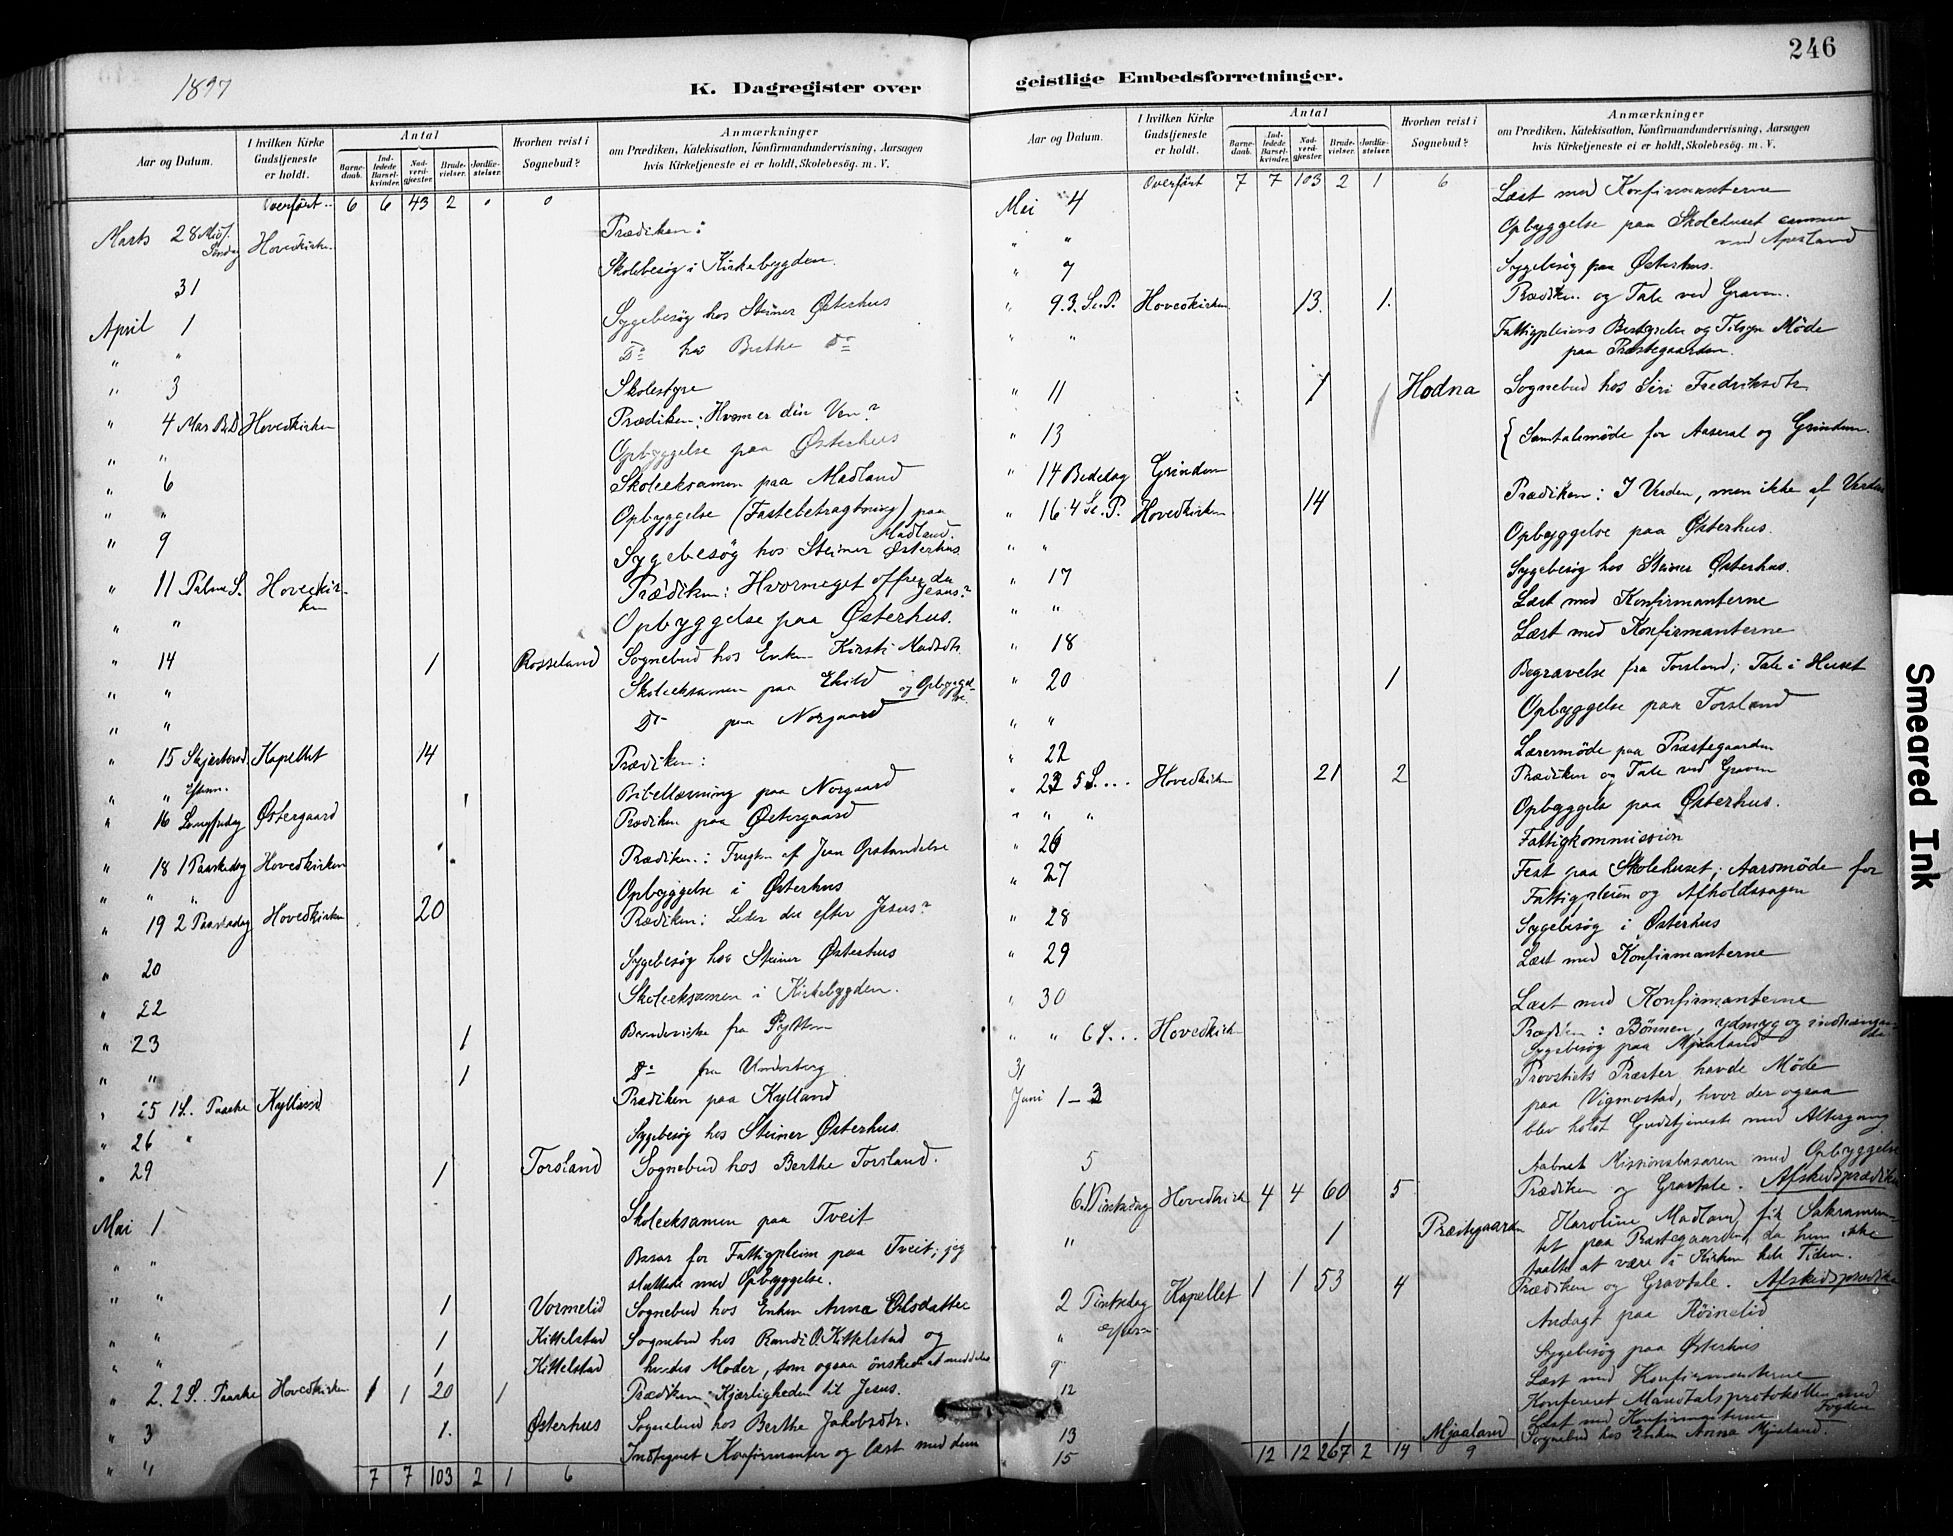 246
1897
K. Dagregister over
geistlige Embedsforretninger.
Aar og Datum.
I hvilken Kirke Gudstjeneste er holdt.
Antal
Barne-daab.
Ind-ledede Barsel-kvinder.
Nad-verd-gjæster.
Brude-vielser.
Jordfæ-stelser.
Hvorhen reist i Sognebud?
Anmærkninger
om Prædiken, Katekisation, Konfirmandundervisning, Aarsagen
hvis Kirketjeneste ei er holdt, Skolebesøg. m. V.
Overført 6 6 43 2 " 0
Marts 28 Midf. Søndag Hovedkirken Prædiken:
31 Skolebesøg i Kirkebygden.
April 1 Sygebesøg hos Steiner Østerhus
" " Do hos Berthe Do
" 3 Skolestyre
" 4 Mar. B. D. Hovedkirken Prædiken: Hvem er din Ven?
" " Opbyggelse paa Østerhus
" 6 Skoleeksamen paa Madland
" " Opbyggelse (Fastebetragtning) paa Madland.
" 9 Sygebesøg hos Steiner Østerhus
" 11 Palme S. Hovedkirken Prædiken: Hvormeget offrer du Jesus?
" " Opbyggelse paa Østerhus.
" 14 1 Rosseland Sognebud hos Enken Kirsti Madsdtr.
" " Skoleeksamen paa Ekild og Opbyggelse
" " Do paa Norgaard
" 15 Skjærtorsd. Kapellet 14 Prædiken:
" " Eftm. Bibellæsning paa Norgaard
" 16 Langfredag Østergaard Prædiken paa Østergaard
" 18 1 Paaskedag Hovedkirken Prædiken: Frugten af Jesu Opstandelse
" " " Opbyggelse i Østerhus
" 19 2 Paaskedag Hovedkirken 20 Prædiken: Leder du efter Jesus?
" 20 Sygebesøg hos Steiner Østerhus
" 22 Skoleeksamen i Kirkebygden.
" 23 1 Brudevielse fra
" " 1 Do fra Underberg
" 25 1 S. Paaske Kylland Prædiken paa Kylland
" 26 " Sygebesøg hos Steiner Østerhus.
" 29 1 Torsland Sognebud hos Berthe Torsland.
Mai 1 Skoleeksamen paa Tveit
" " Basar for Fattigpleien paa Tveit; jeg
sluttede med Opbyggelse.
" " 1 Vormelid Sognebud hos Enken Anna Olsdatter
" " 1 Kittelstad Sognebud hos Randi O. Kittelstad og
" " 1 Kittelstad hendes Moder, som ogsaa ønskede at meddeles
" 2. 2 S. Paaske Hovedkirken 1 1 20 1 Prædiken: Kjærligheden til Jesus.
" 3 1. Østerhus Sognebud hos Berthe Jakobsdtr.
" " Indtegnet Konfirmanter og læst med dem
7 7 103 2 1 6
Aar og Datum.
I hvilken Kirke Gudstjeneste er holdt.
Antal
Barne-daab.
Ind-ledede Barsel-kvinder.
Nad-verd-gjæster.
Brude-vielser.
Jordfæ-stelser.
Hvorhen reist i Sognebud?
Anmærkninger
om Prædiken, Katekisation, Konfirmandundervisning, Aarsagen
hvis Kirketjeneste ei er holdt, Skolebesøg. m. V.
Overført 7 7 103 2 1 6
Mai 4 Læst med Konfirmanterne
" " Opbyggelse paa Skolehuset sammen med Apesland
" 7 Sygebesøg paa Østerhus.
" 9. 3. S.e.P. Hovedkirken 13. 1. Prædiken og Tale ved Graven.
" " Fattigpleiens Bestyrelse og Tilsyn Møde
paa Præstegaarden.
" 11 1 Hodna Sognebud hos Siri Fredriksdtr.
" 13 { Samtalemøde for Aaseral og Grinden.
" 14 Bededag Grinden
" 16. 4 S.e.P. Hovedkirken 14 Prædiken: I Verden, men ikke af Verden
" " Opbyggelse paa Østerhus.
" 17 Sygebesøg hos Steiner Østerhus.
" " Læst med Konfirmanterne
" 18 Læst med Konfirmanterne
" 20 1 Begravelse fra Torsland; Tale i Huset
" " Opbyggelse paa Torsland
" 22 Lærermøde paa Præstegaarden
" 23 5 S... Hovedkirken 21 2 Prædiken og Tale ved Graven
" " " Opbyggelse paa Østerhus.
" 26 Fattigkommission
" 27 Fest paa Skolehuset; Aarsmøde for
Fattigpleien og Afholdssagen
" 28 Sygebesøg i Østerhus
" 29 Læst med Konfirmanterne
" 30 Læst med Konfirmanterne
" " 6 S... Hovedkirken Prædiken: Bønnen, ydmyg og indtrængende
31 Sygebesøg paa Mjaaland
Juni 1 – 3 Provstiets Præster havde Møde
paa Vigmostad, hvor der ogsaa
blev holdt Gudstjeneste med Altergang
5 Aabnet Missionsbasaren med Opbyggelse
6. 1 Pintsedag Hovedkirken 4 4 60 5 Prædiken og Gravtale. Afskedsprædiken
" 1 Præstegaarden Karoline Madland fik Sakramen-
tet paa Præstegaarden, da hun ikke
taalte at være i Kirken hele Tiden.
2 Pintsedag Kapellet 1 1 53 4 Prædiken og Gravtale. Afskedsprædiken
" Eftm. Andagt paa Røinelid
9 Sygebesøg paa Østerhus
12 Læst med Konfirmanterne
Konfereret Mandtalsprotokollen med Fogden
13 Læst med Konfirmanterne
15 1 Mjaaland Sognebud hos Enken Anna Mjaaland.
12 12 267 2 14 9
Smeared Ink